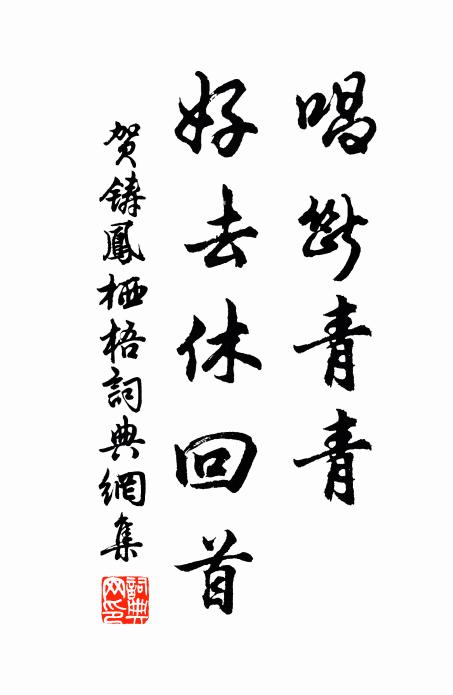 唱断青青
好去休回首
贺铸鳳栖梧詞典網集
詞典網印